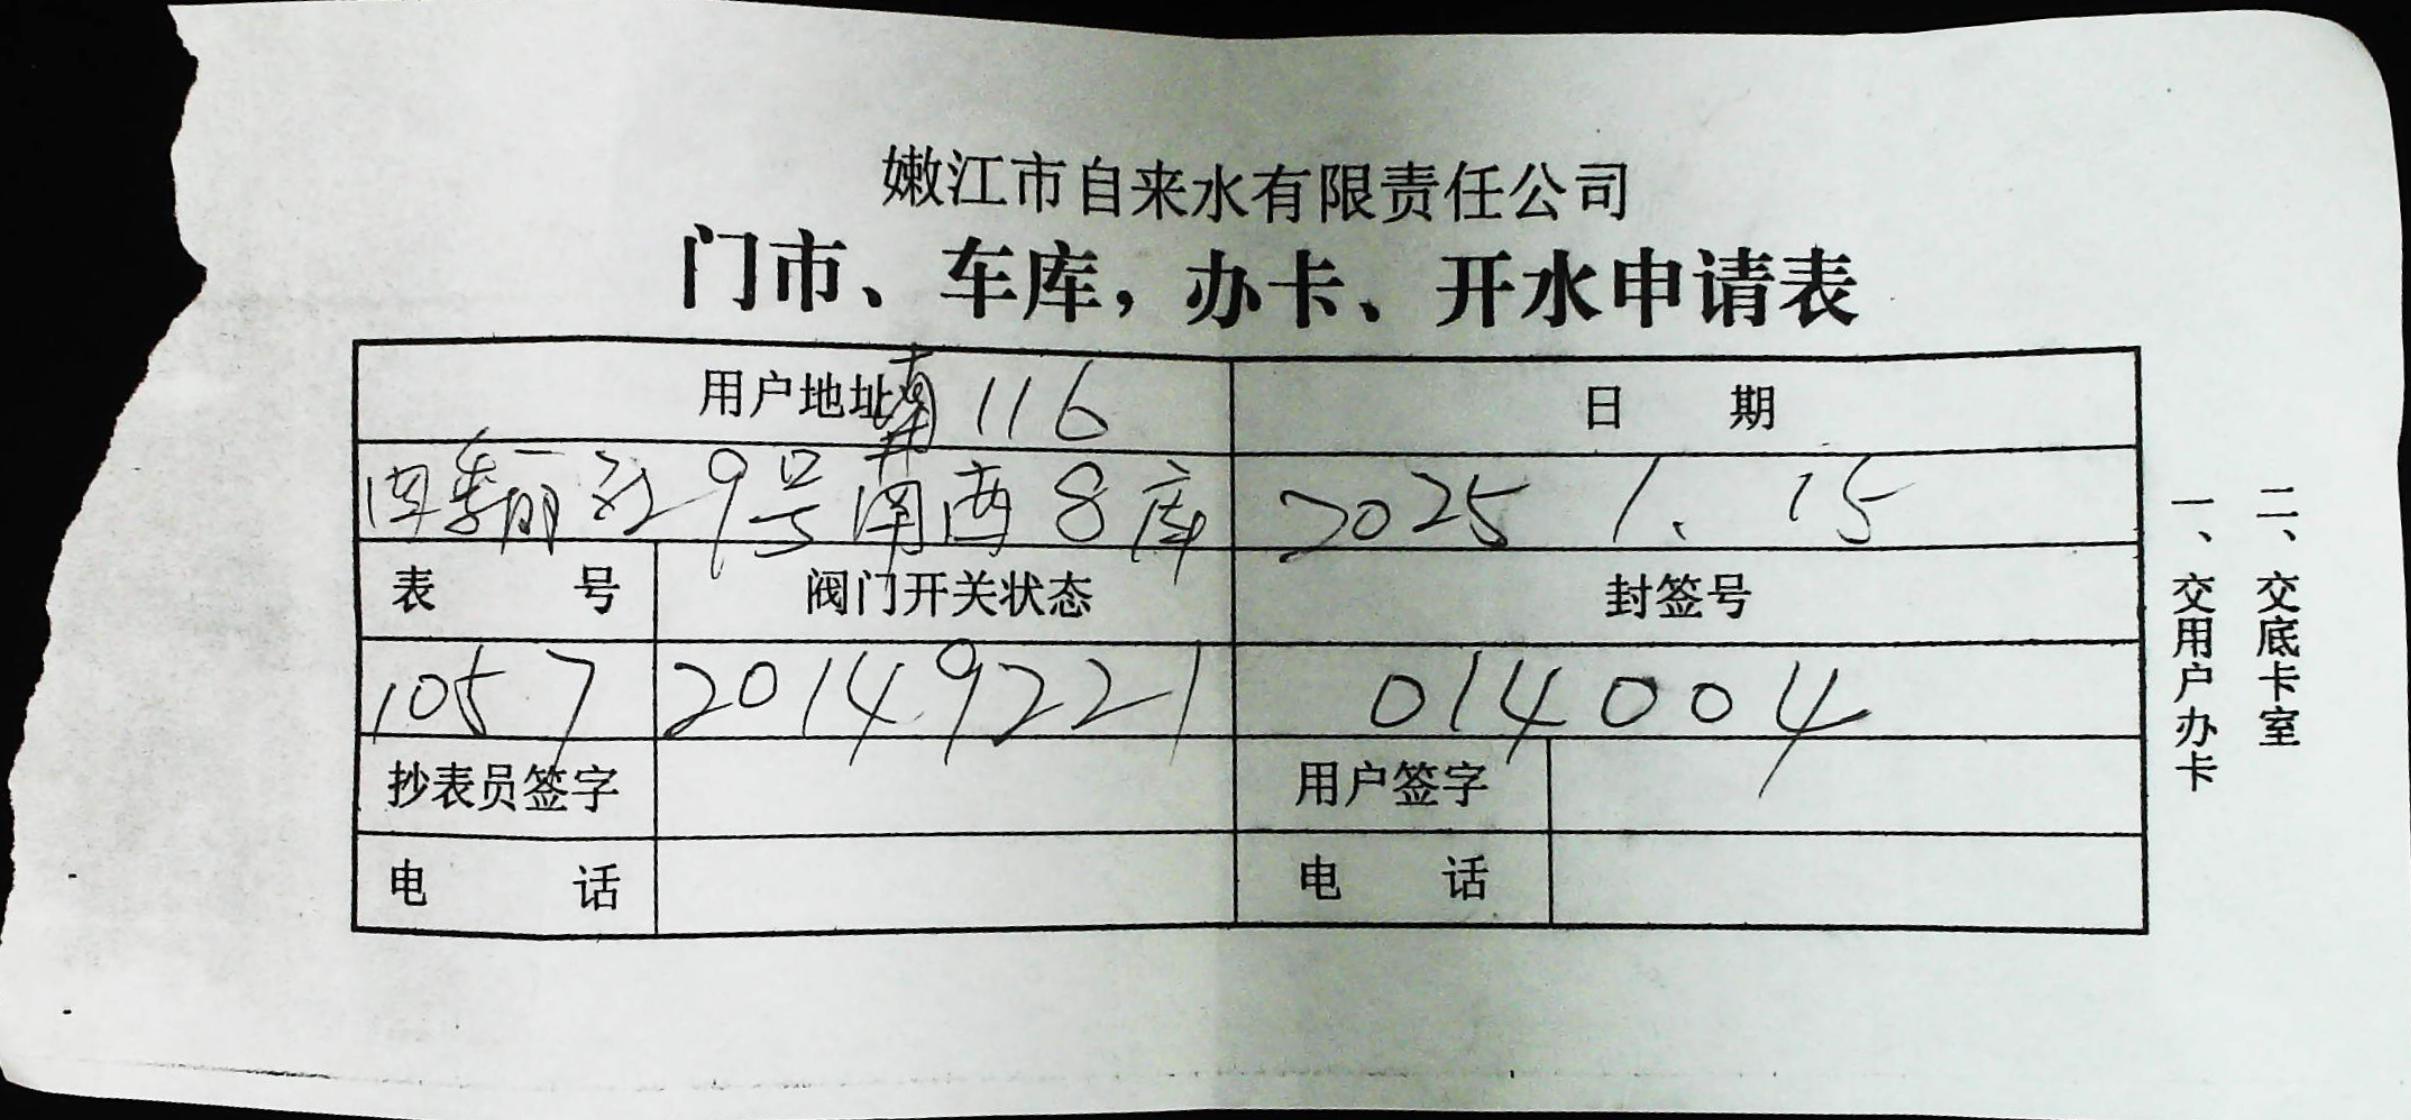 嫩江市自来水有限责任公司
门市、车库，办卡、开水申请表
用户地址 116
日 期
四季丽江9号 西8库
2025 1. 15
表 号
阀门开关状态
封签号
1057
20149221
014004
抄表员签字
用户签字
电 话
电 话
二、交底卡室
一、交用户办卡